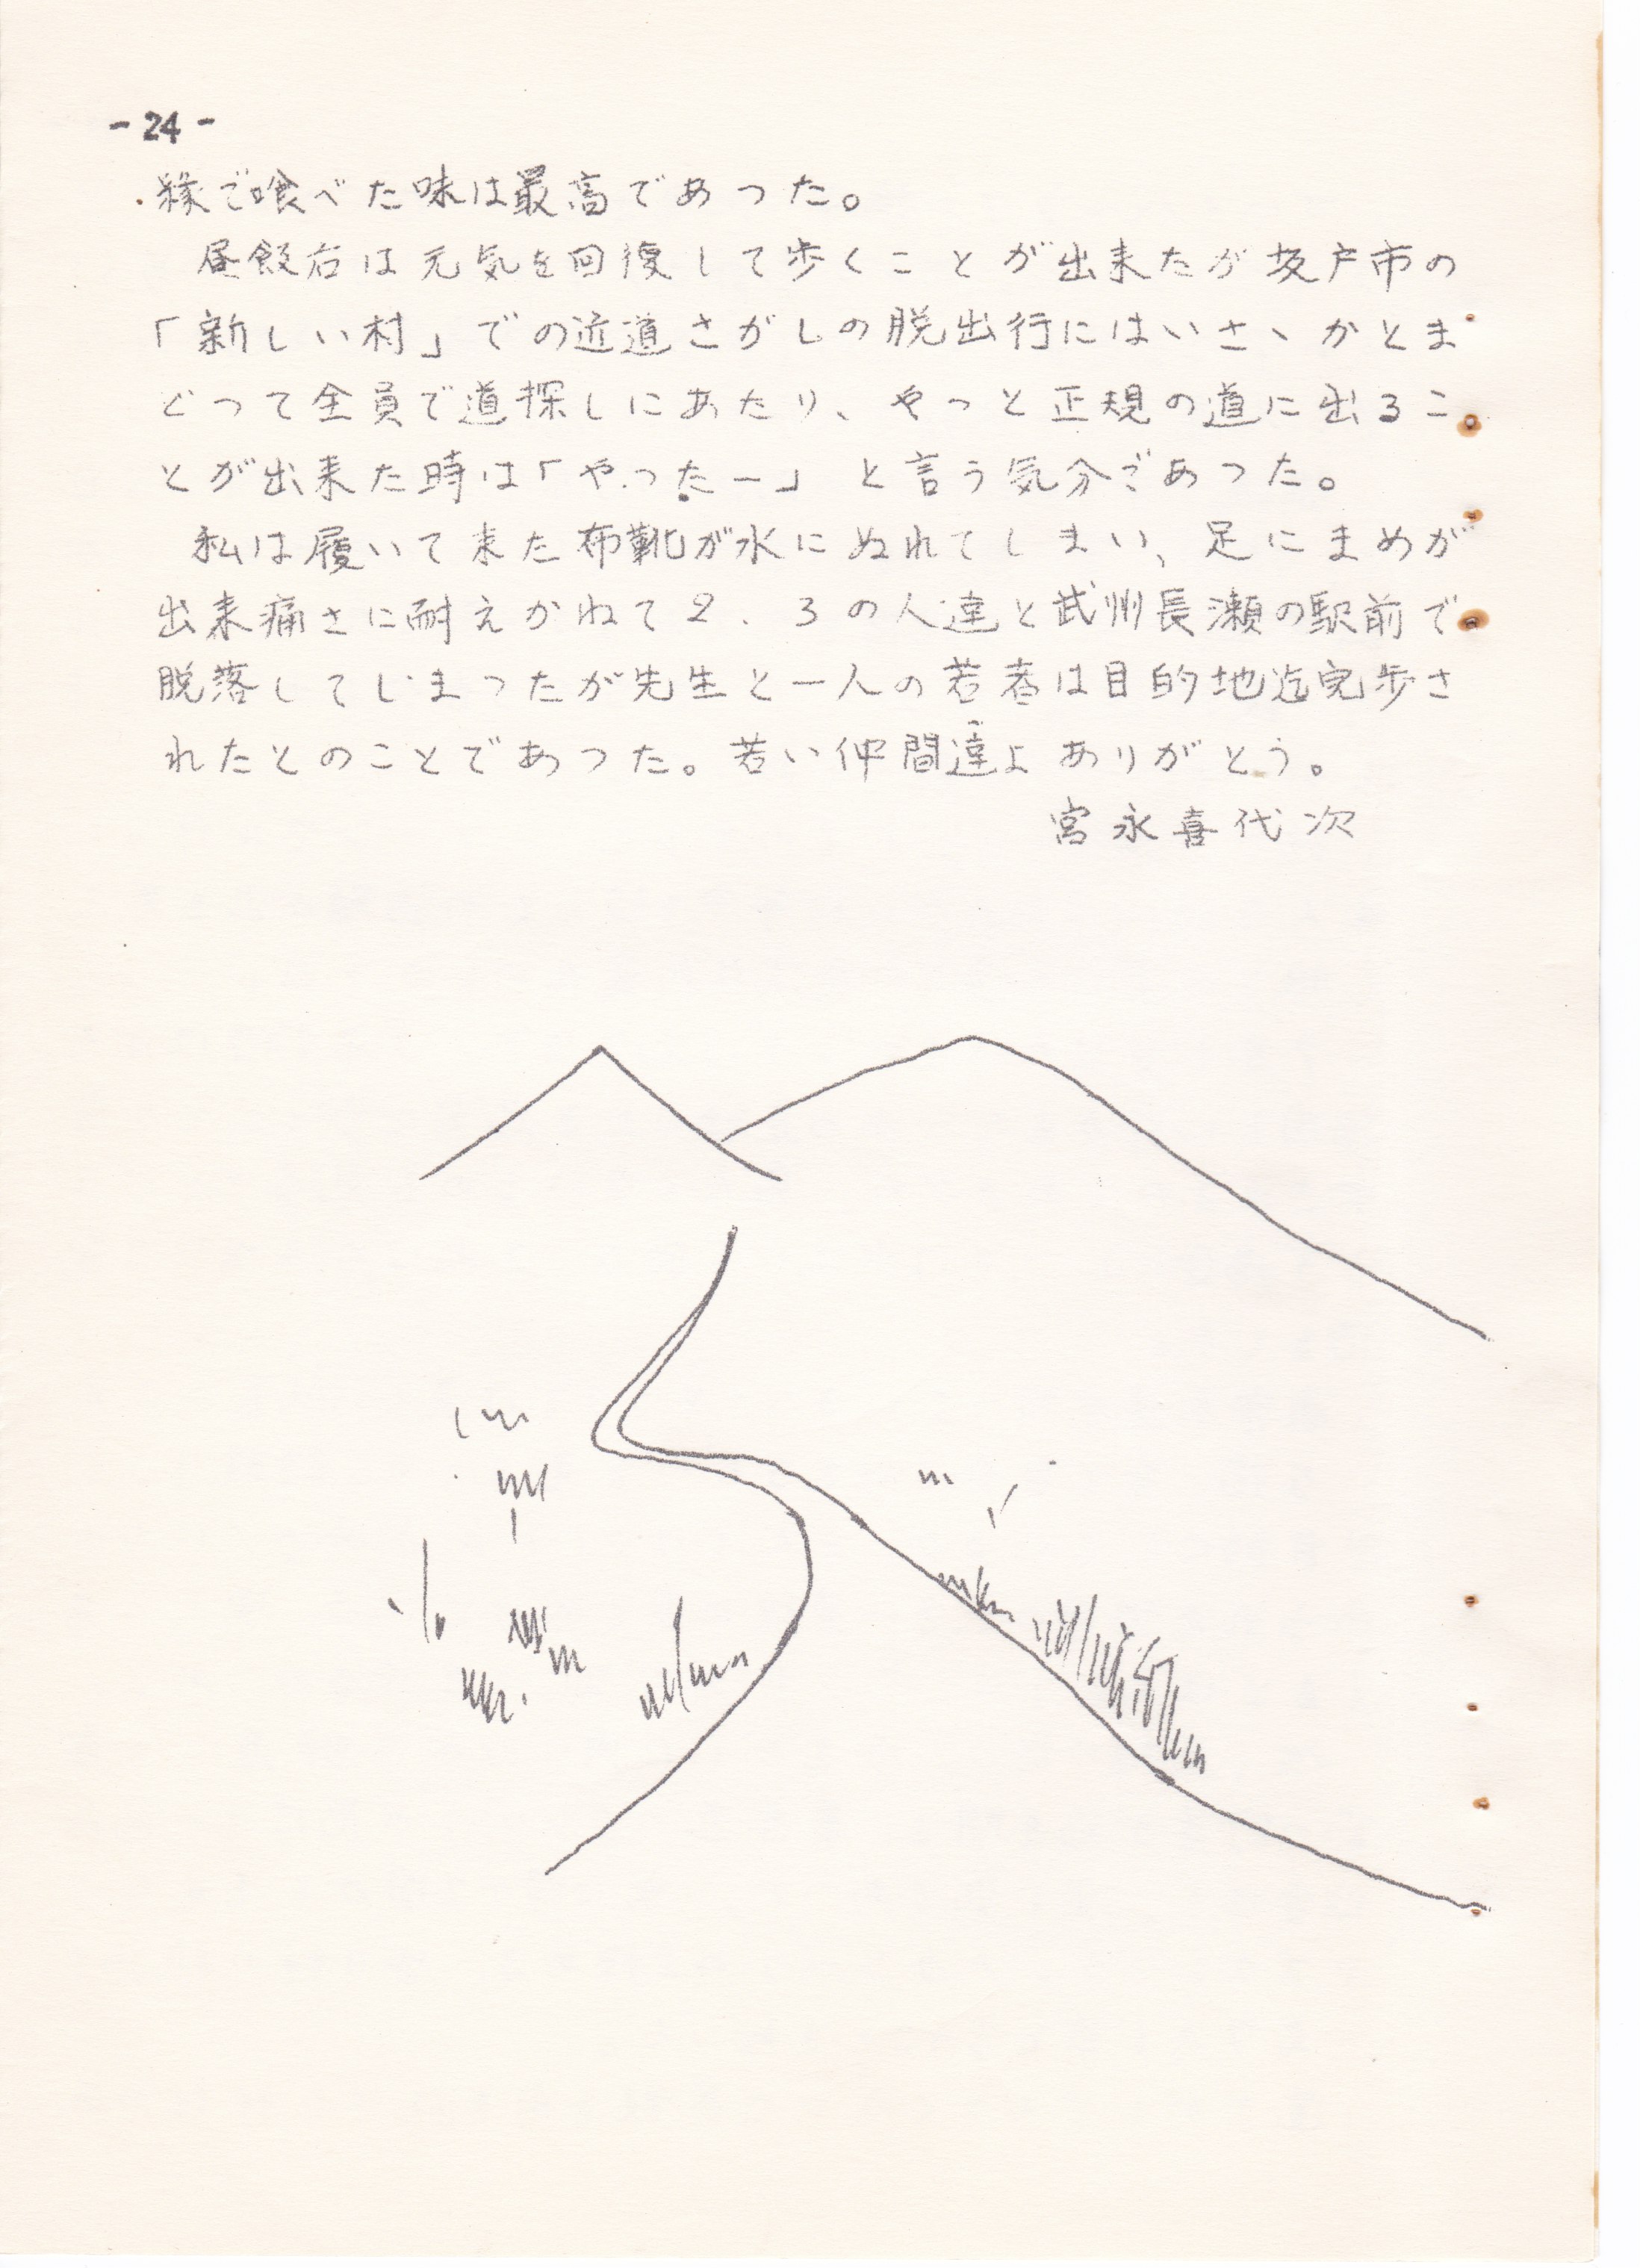 -24-
縁で喰べた味は最高であつた。
昼飯后は元気を回復して歩くことが出来たが坂戸市の
「新しい村」での近道さがしの脱出行にはいさゝかとま
どつて全員で道探しにあたり、やっと正規の道に出るこ
とが出来た時は「やったー」と言う気分であつた。
私は履いて来た布靴が水にぬれてしまい、足にまめが
出来痛さに耐えかねて2、3の人達と武州長瀬の駅前で
脱落してしまつたが先生と一人の若者は目的地迄完歩さ
れたとのことであつた。若い仲間達よありがとう。
宮永喜代次